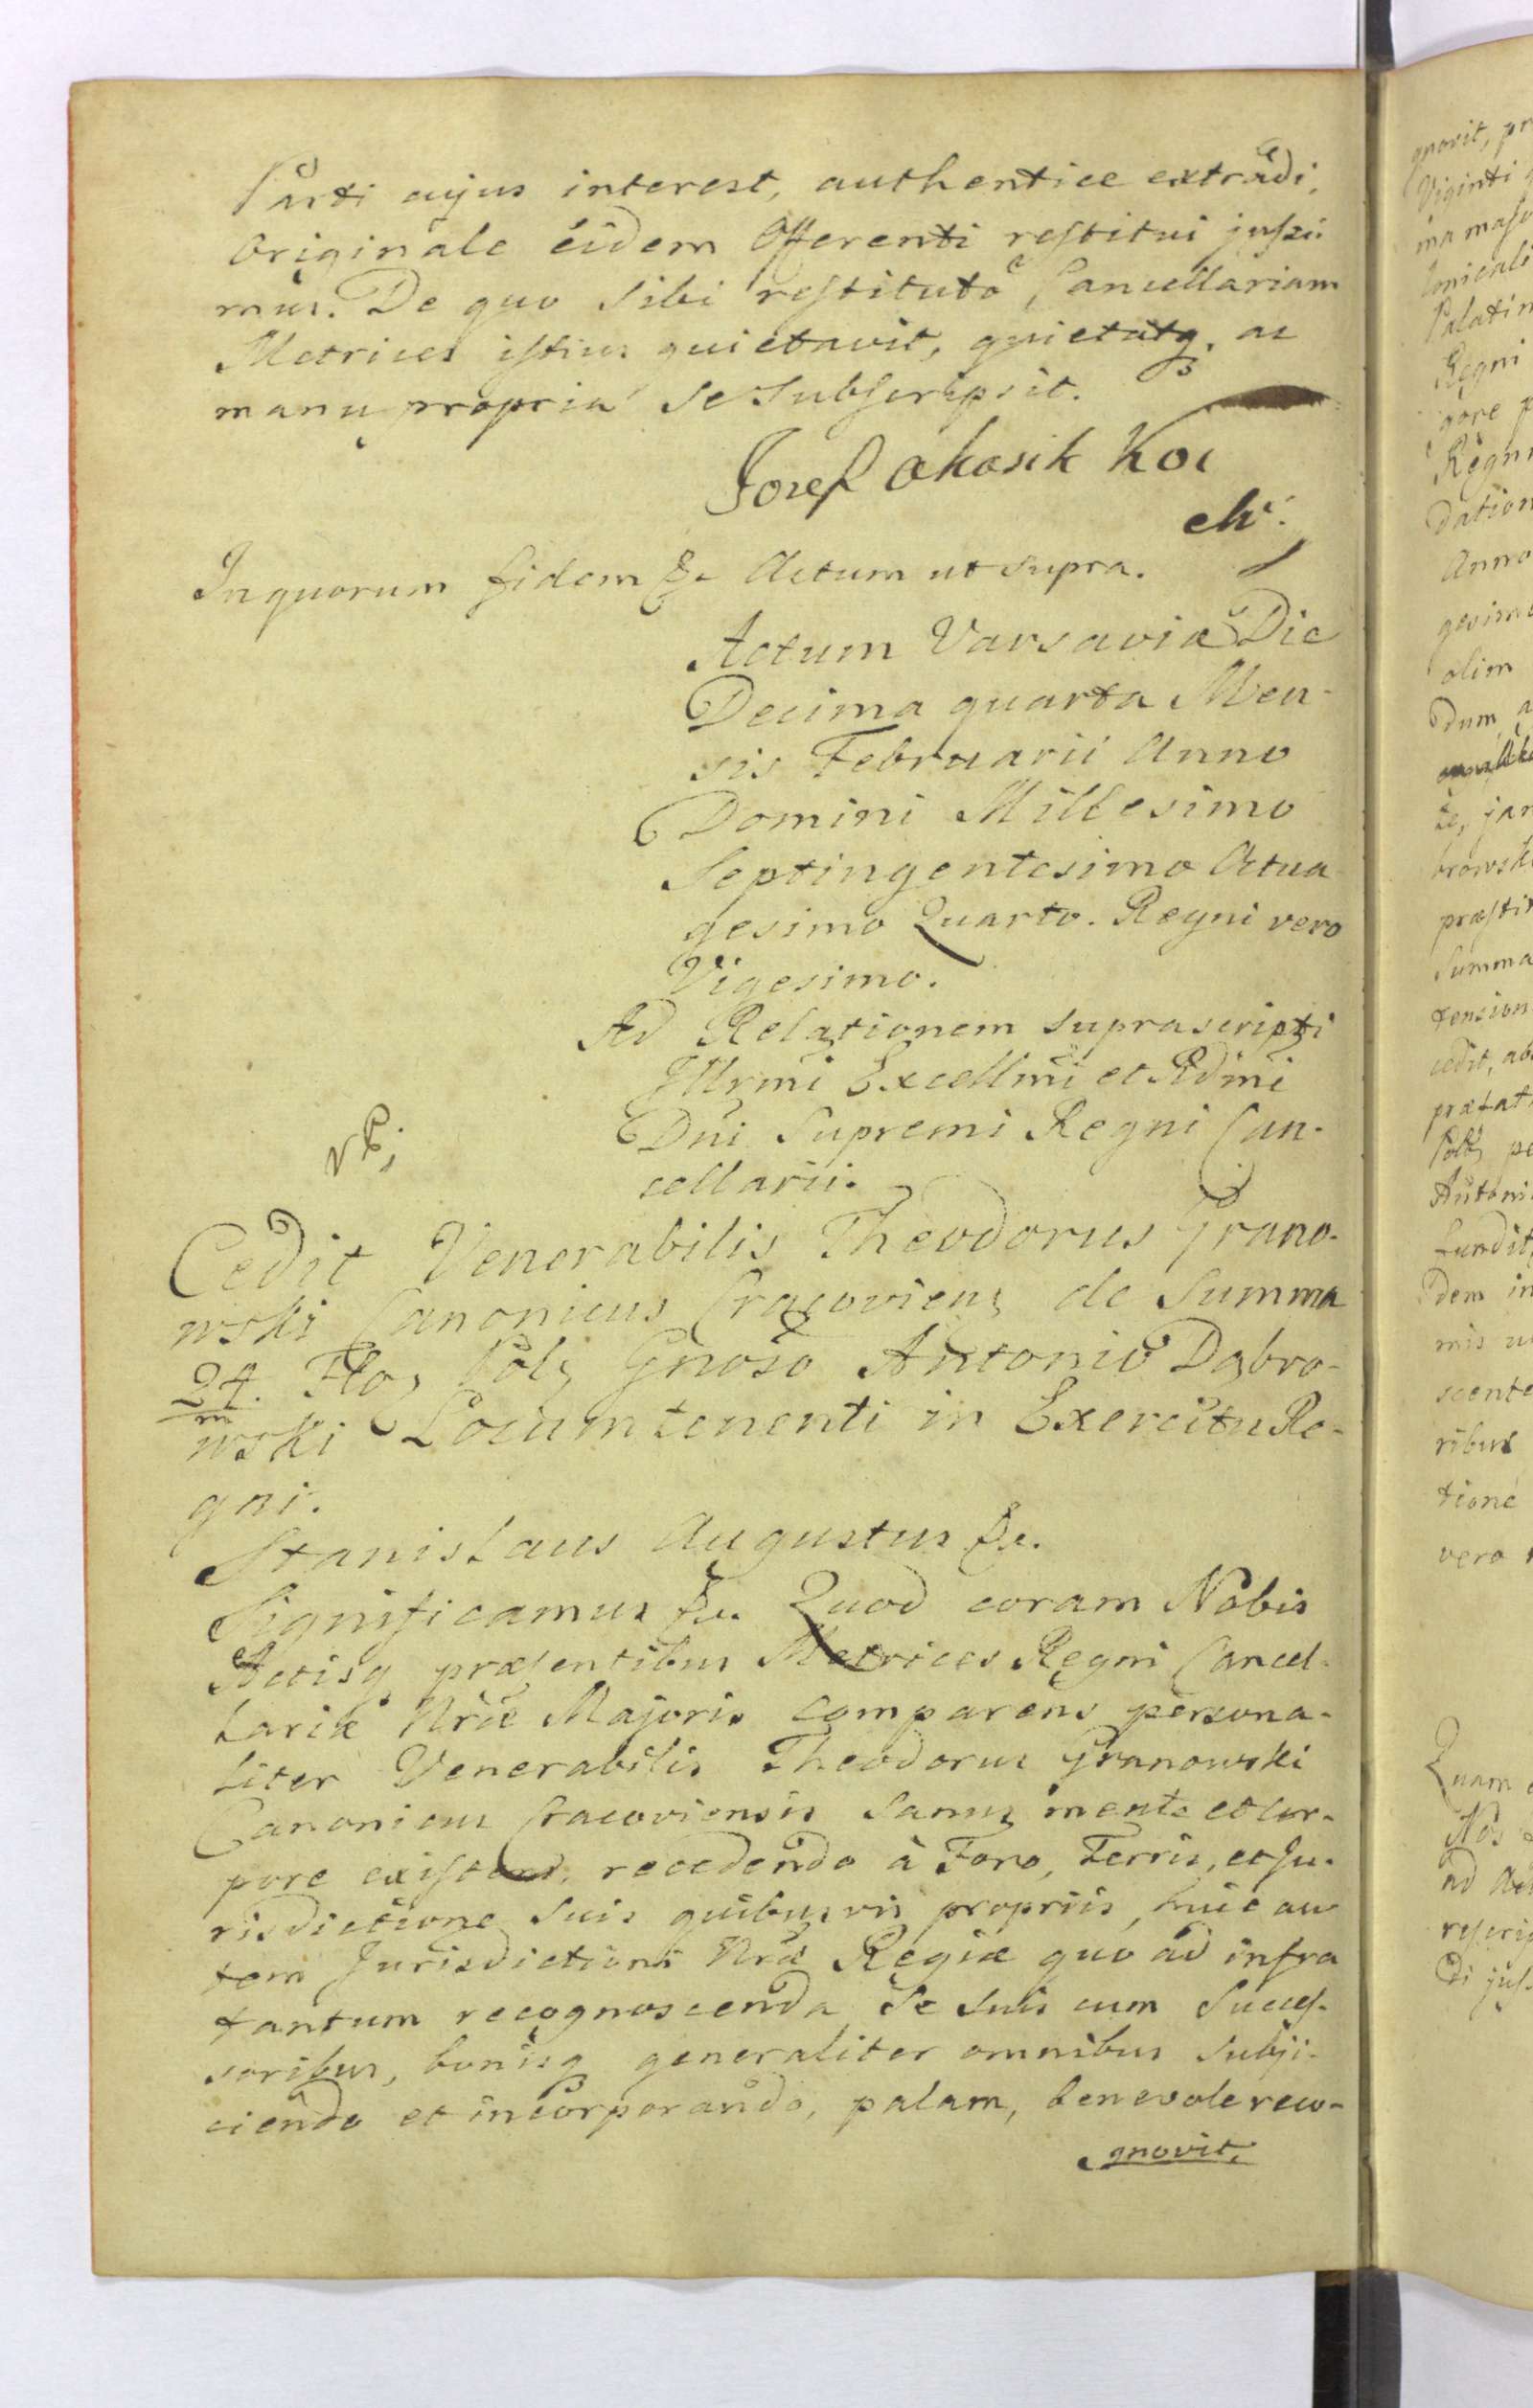 Parti cujus interest, authentice extradi,
Originale eidem Offerenti restitui jussi-
mus. De quo sibi restituto, Cancellariam
Metrices istius quietavit, quietatq, ac
manu propria se subscripsit.
Jozef
In quorum fidem &c Actum ut supra.
Actum Varsaviæ Die
Decima quarta Men-
sis Februarii Anno
Domini Millesimo
Septingentesimo Octua
gesimo Quarto. Regni vero
Vigesimo.
Ad Relationem suprascripti
Illrmi Excellmi et Rdmi
Dni Supremi Regni Can-
cellarii.
Cedit Venerabilis Theodorus Grano-
wski Canonicus Cracoviens de Summa
24. m Flo, Pol, Gnoso Antonio Dąbro-
wski Locumtenenti in Exercitu Re-
gni.
Stanislaus Augustus &c.
Significamus &c. Quod coram Nobis
Actisq præsentibus Metrices Regni Cancel-
lariæ Nræ Majoris comparens persona-
liter Venerabilis Theodorus Granowski
Canonicus Cracoviensis sanus mente et cor-
pore existens, recedendo à Foro, Terris, et Ju-
risdictione suis quibusvis propriis, huic au
tem Jurisdictioni Nræ Regiæ quo ad infra
tantum recognoscenda se suis cum Succes-
soribus, bonisq generaliter omnibus subji-
ciendo et incorporando, palam, benevole reco-
gnovit,
gnovit, pr
Viginti
Palatin
Regni
Regni
Dation
Anno
gesimo
olim
Dum a
Summa
Antoni
fundit,
dem in
scente
ribus
tione
vero
Quam
Nos